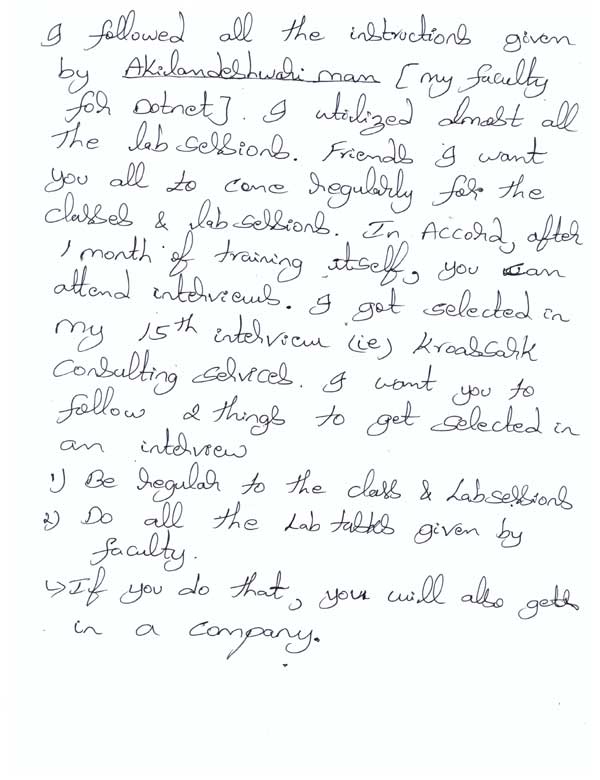 I followed all the instructions given
by Akilandeshwari mam [my faculty
for Dotnet]. I utilized almost all
the lab sessions. Friends I want
you all to come regularly for the
classes & lab sessions. In Accord, after
1 month of training itself, you can
attend interviews. I got selected in
my 15th interview (ie)
Consulting services. I want you to
follow 2 things to get selected in
an interview
1) Be regular to the class & Lab sessions
2) Do all the Lab tasks given by
faculty.
↳ If you do that, you will also get
in a company.